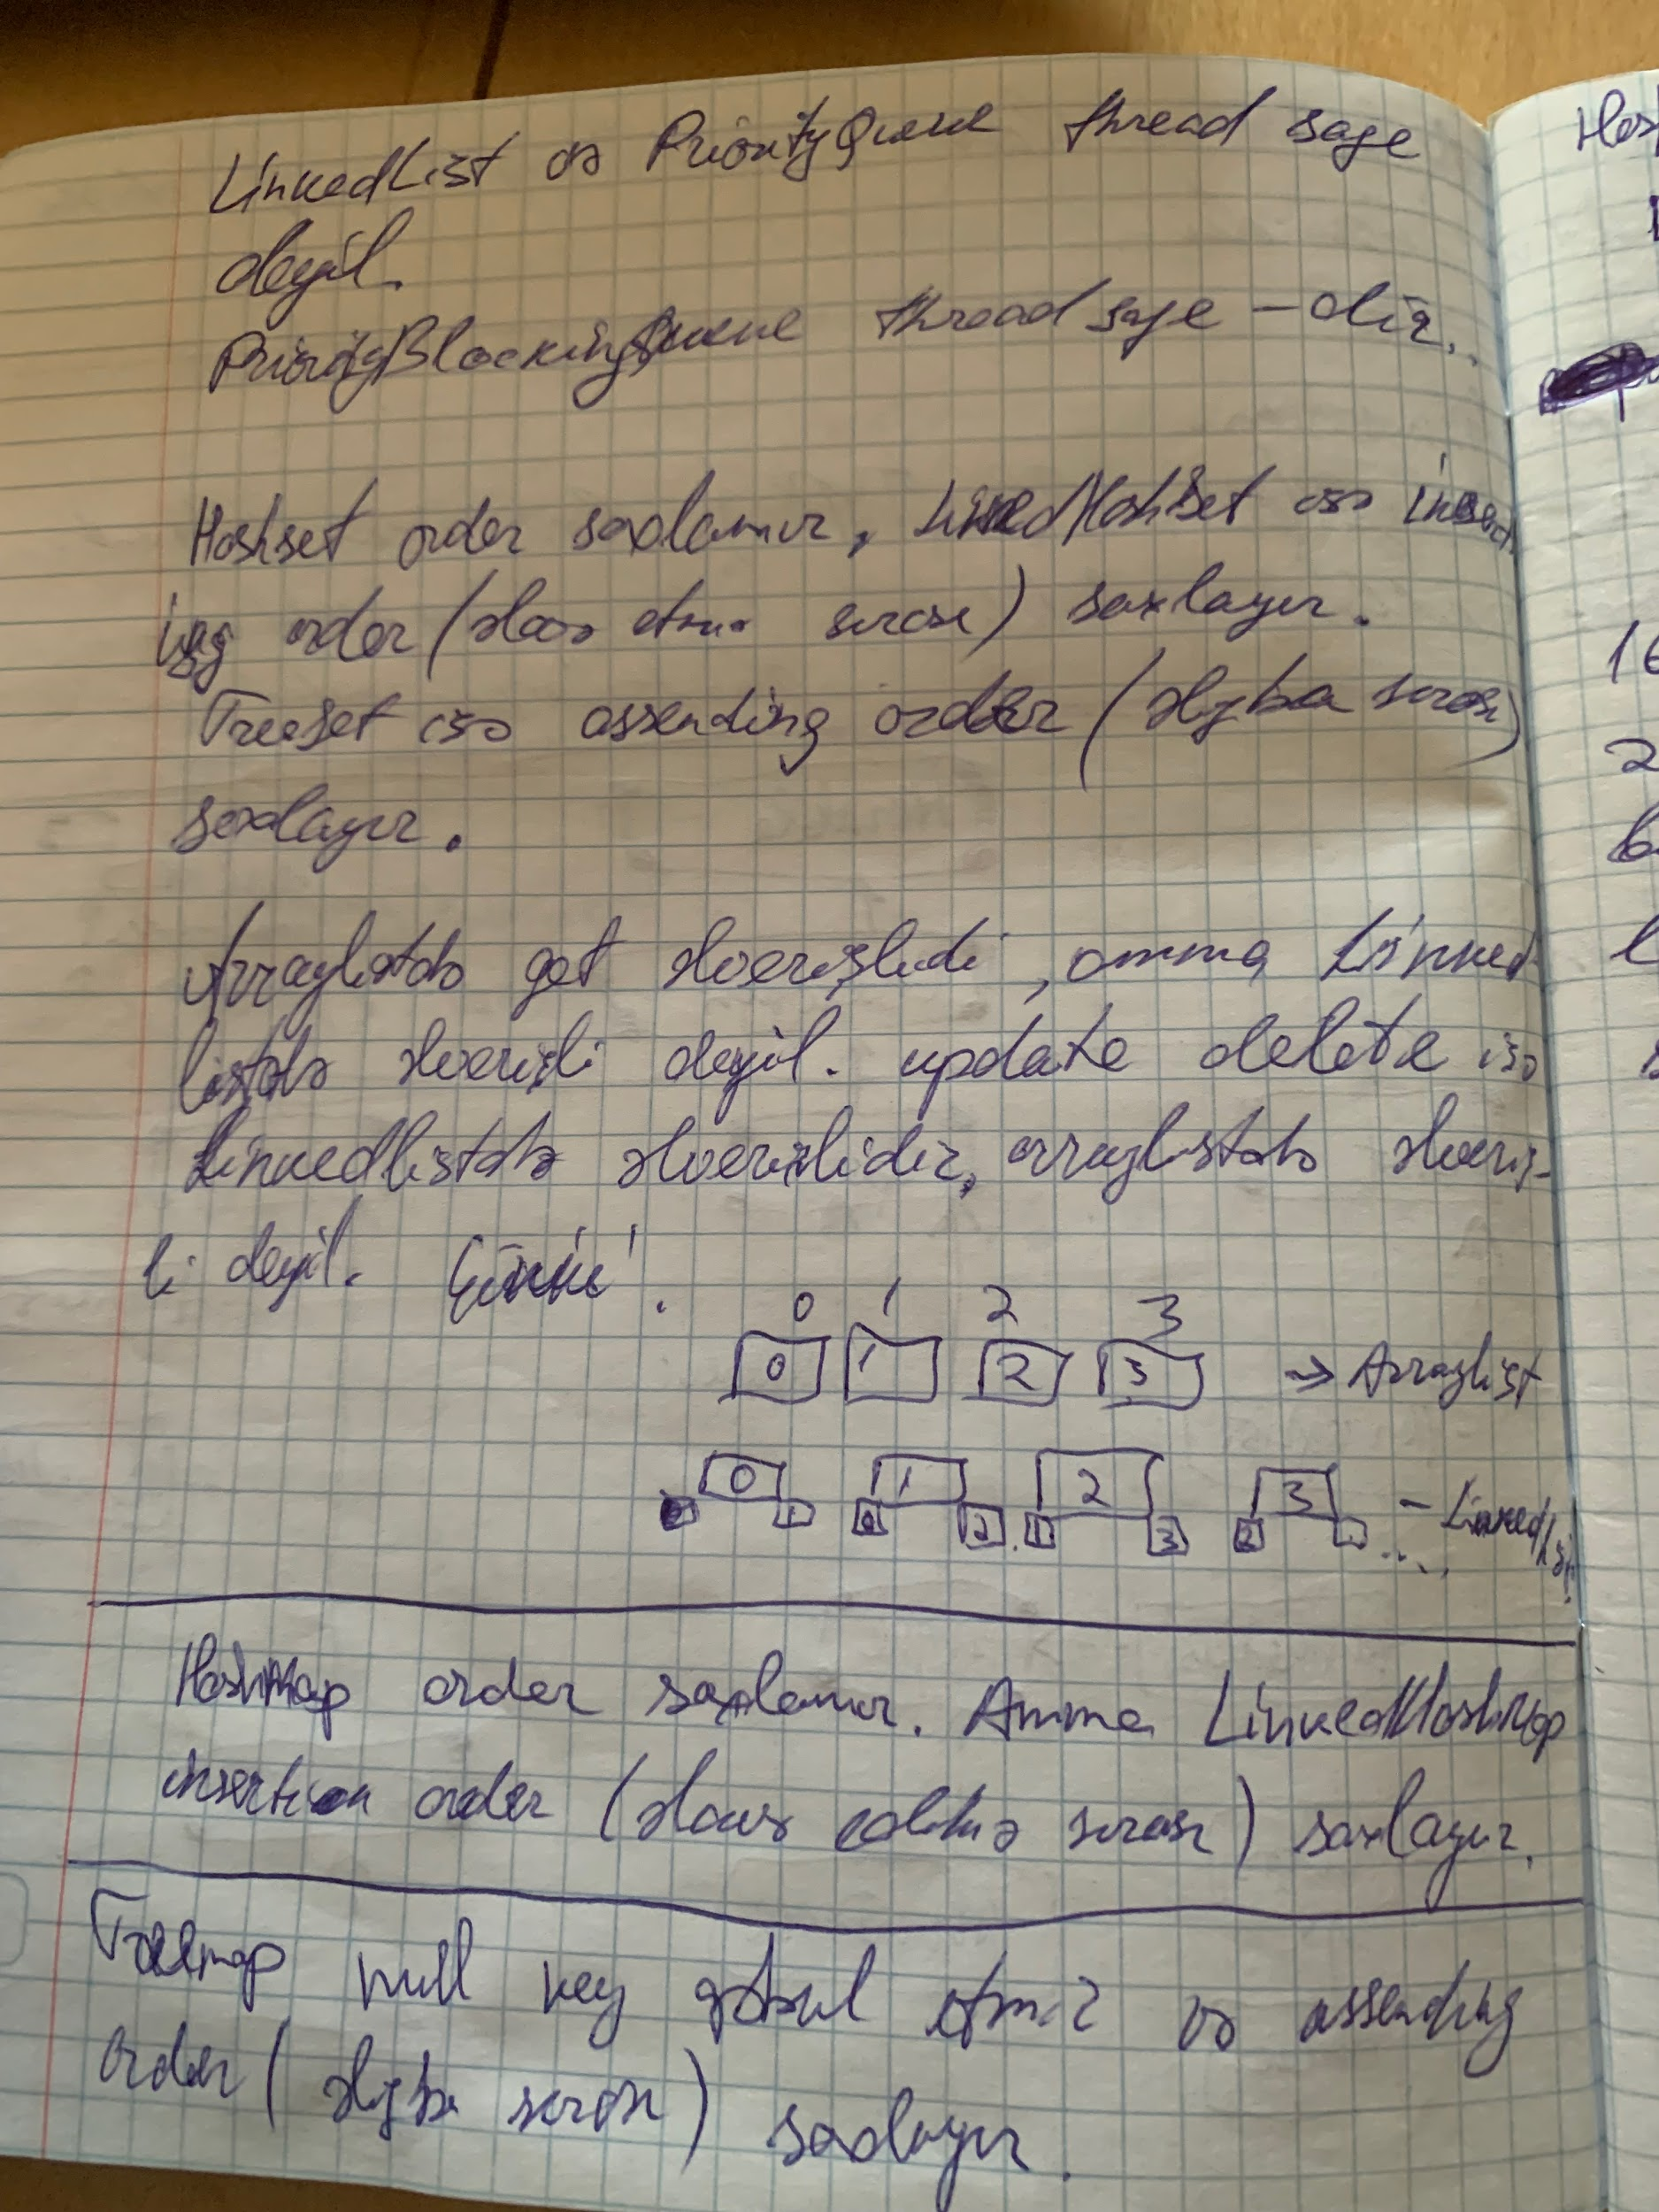 LinkedList və PriorityQueue thread safe
deyil.
PriorityBlockingQueue thread safe-dir..
Hashset order saxlamır, LinkedHashSet isə insert
ing order (əlavə etmə sırası) saxlayır.
TreeSet isə assending order (əlifba sırası)
saxlayır.
Arraylistdə get əlverişlidi, amma Linked
listdə əlverişli deyil. update delete isə
Linkedlistdə əlverişlidir, arraylistdə əlveriş-
li deyil. Çünki.
0 1 2 3
0 1 2 3 → Arraylist
0 1 2 3 - LinkedList
1 0 2 1 3 2
HashMap order saxlamır. Amma LinkedHashMap
insertion order (əlavə edilmə sırası) saxlayır.
Treemap null key qəbul etmir və assending
order (əlifba sırası) saxlayır.
Has
16
2